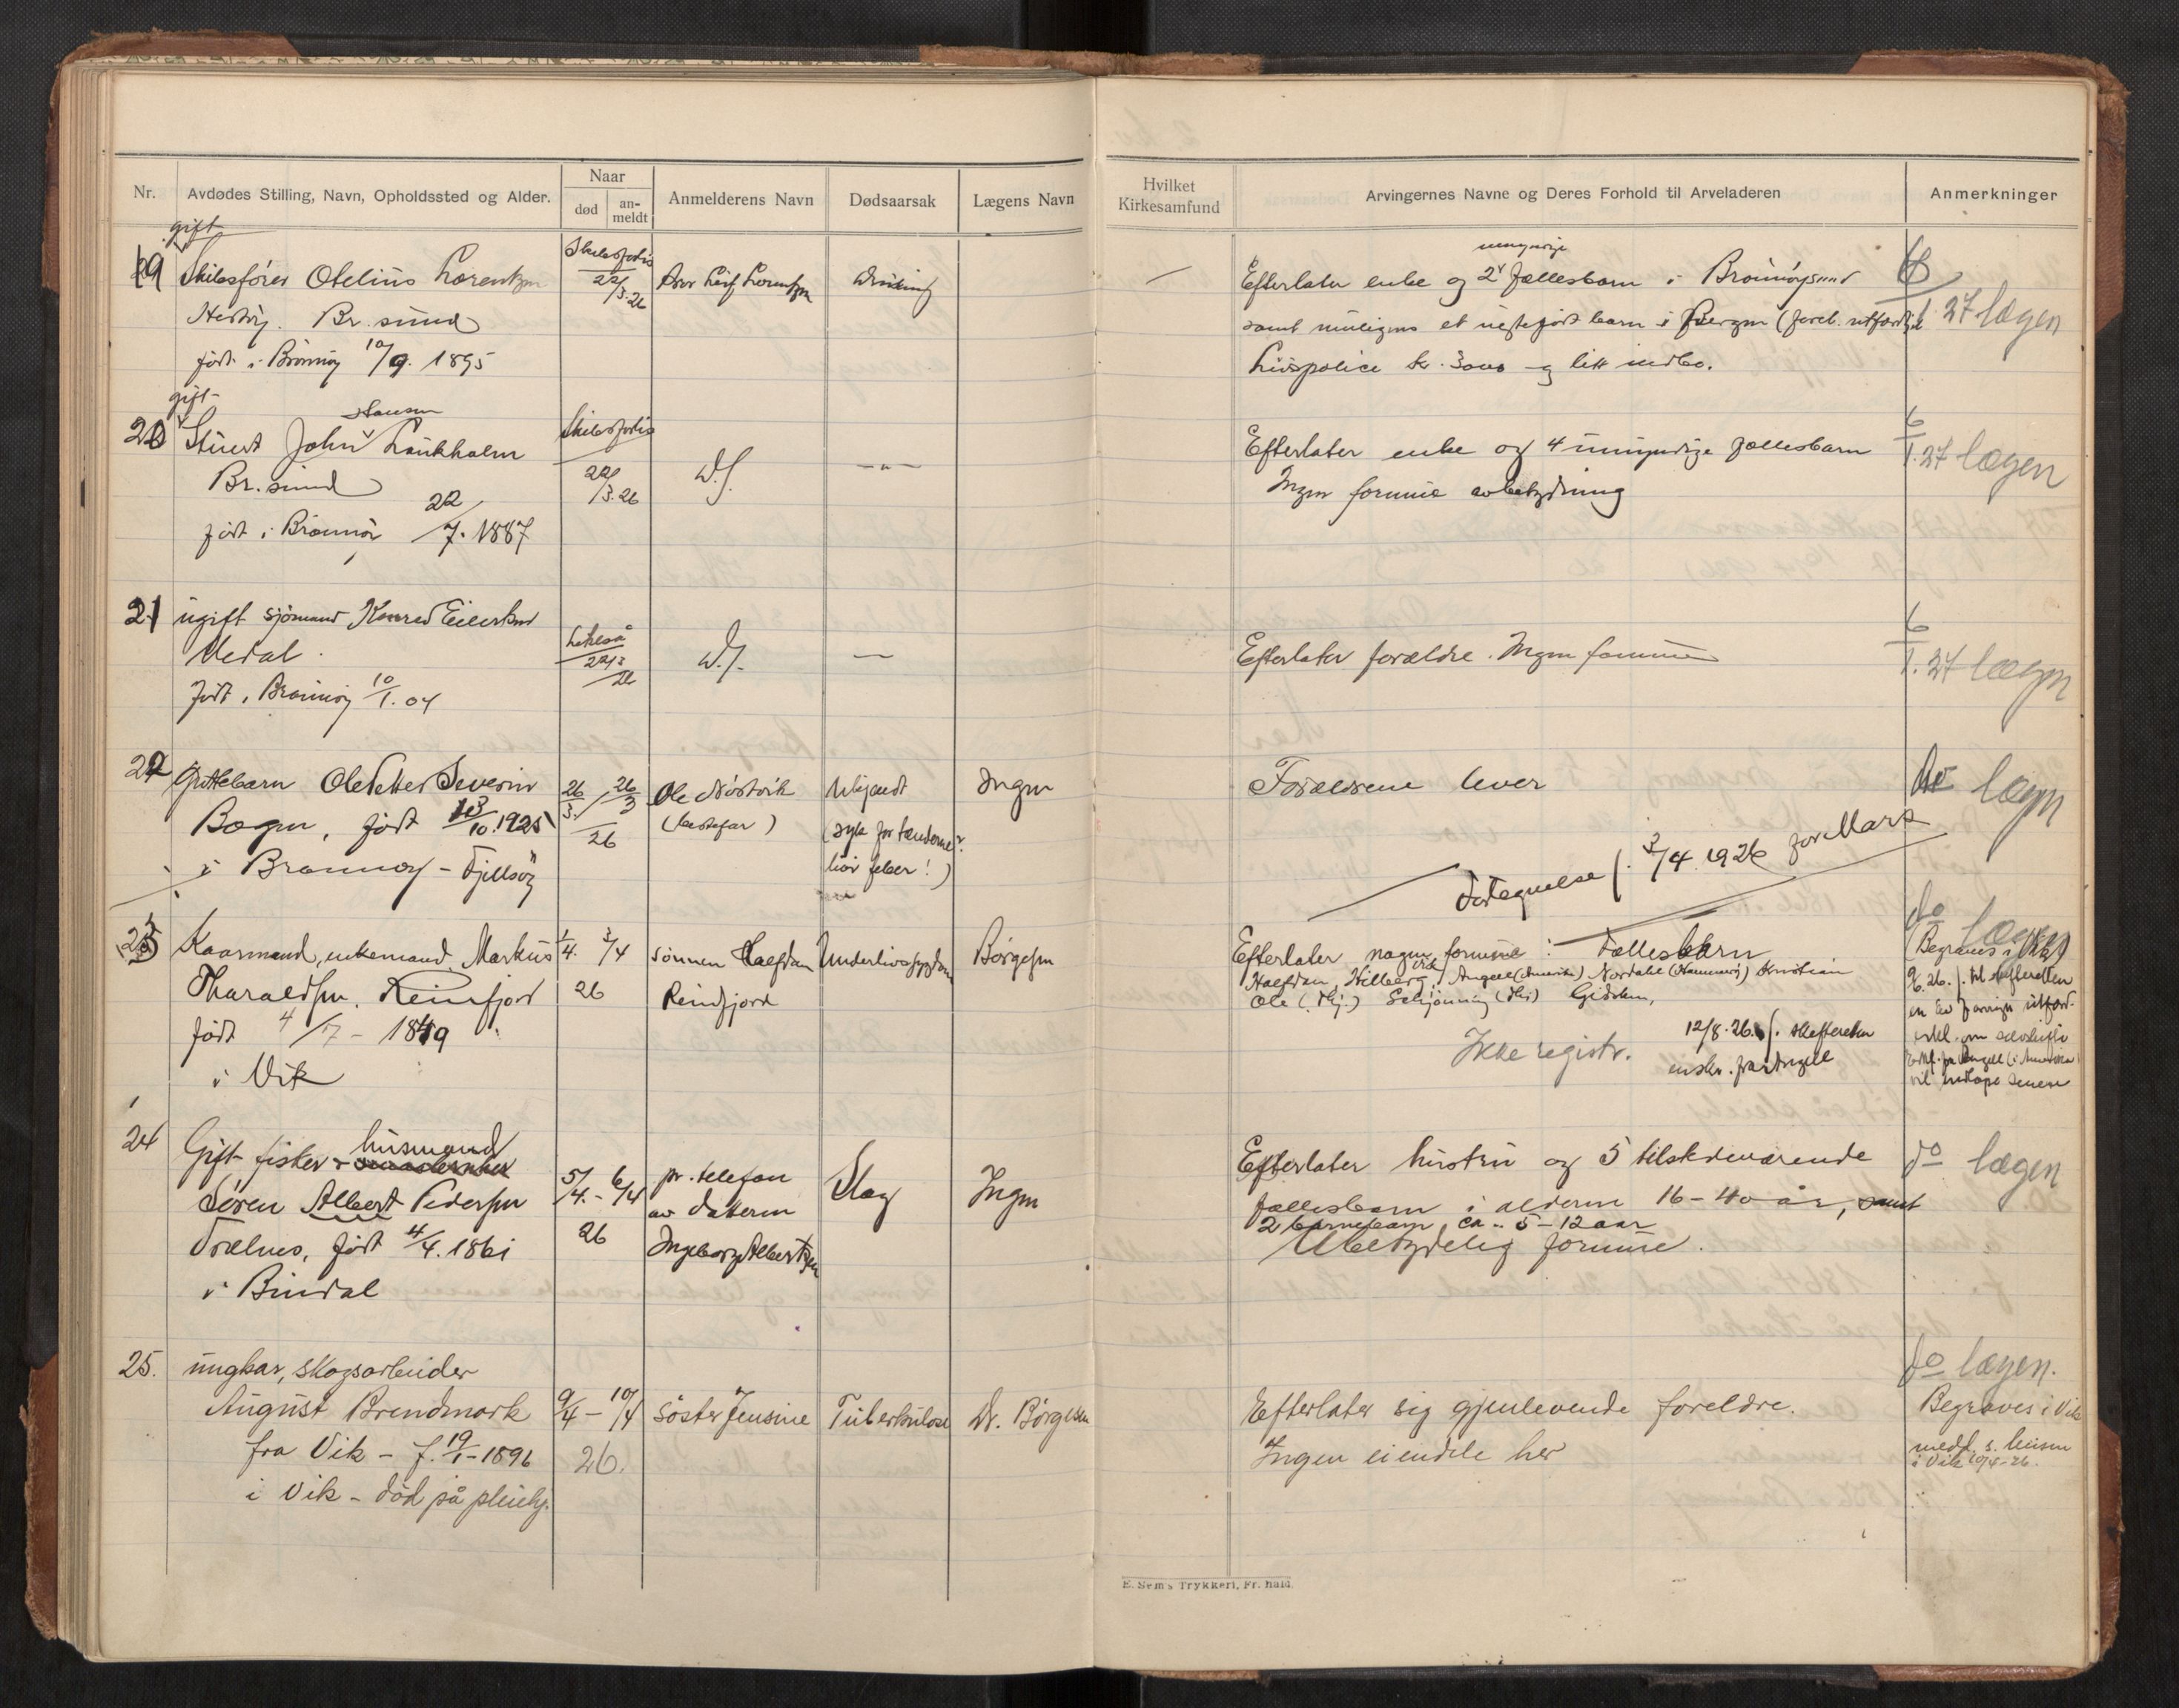 Nr.
Avdødes Stilling, Navn, Opholdssted og Alder.
Naar
død
an-
meldt
Anmelderens Navn
Dødsaarsak
Lægens Navn
Hvilket
Kirkesamfund
Arvingernes Navne og Deres Forhold til Arveladeren
Anmerkninger
gift
19 Skibsfører Otelius Lorentzen
Br. sund
født i Brønnøy 10/9. 1895
Skibsforlis
22/3.26
Bror Leif Lorentzen
Drukning
—
umyndige
Efterlater enke og 2 fællesbarn i Brønnøysund
samt muligens et uegtefødt barn i Bergen
Livspolice kr. 3000 og litt indbo.
6/1 27 lægen
gift
Hansen
20 Stuert John Laukholm
Br. sund
født i Brønnøy 22/7. 1887
Skibsforlis
22/3.26
D.S.
—"—
Efterlater enke og 4 umyndige fællesbarn
Ingen formue av betydning
6/1.27 lægen
21 ugift sjømand Konrad Eilertsen
født i Brønnøy 10/1.04
22/3 26
D.S.
—
Efterlater forældre. Ingen formue
6/1.27 lægen
22 Guttebarn Ole Petter Severin
Bogen, født 13/10.1925
i Brønnøy - Tjillsøy
26/3. / 26/3
26
Ole Nordvik
(bestefar)
Ukjendt
(syk for tænderne?
feber!)
Ingen
Forældrene lever
do lægen
Fortegnelse f. 3/4.1926 for Mars
23 Kaarmand, enkemand Markus
Tharaldsen, Reinfjord
født 4/7 - 1849
i Vik
1/4. 3/4
26
sønnen Halfdan
Reinfjord
Underlivssygdom
Børgesen
Efterlater nogen formue: Fællesbarn
Vik
Halfdan, Hilberg, Angell (Amerika) Nordahl (Hammerø) Kristian
Ole (Thj.) Schjønning (Thj)
Ikke registr.
12/8.26. f. skifteretten
fra Angell
do lægen
Begraves i Vik
9/6.26. f. til skifteretten
vil indløpe senere
24 Gift fisker - husmand
Søren Albert Pedersen
Trælnes, født 4/4.1861
i Bindal
5/4. - 6/4
26
pr. telefon
av datteren
Ingeborg Albertsen
Slag
Ingen
Efterlater hustru og 5 tilstedeværende
fællesbarn i alderen 16-40 år, samt
2 barnebarn, ca. 5-12 aar
Ubetydelig formue.
do lægen
25. ungkar, skogsarbeider
August Brendmark
fra Vik - f. 19/1-1896
i Vik - død på pleiehj.
9/4 - 10/4
26.
søster Jensine
Tuberkulose
Dr. Børgesen
Efterlater sig gjenlevende foreldre.
Ingen eiendele her
do lægen.
Begraves i Vik
i Vik 10/4-26.
E. Sem's Trykkeri, Fr.hald.